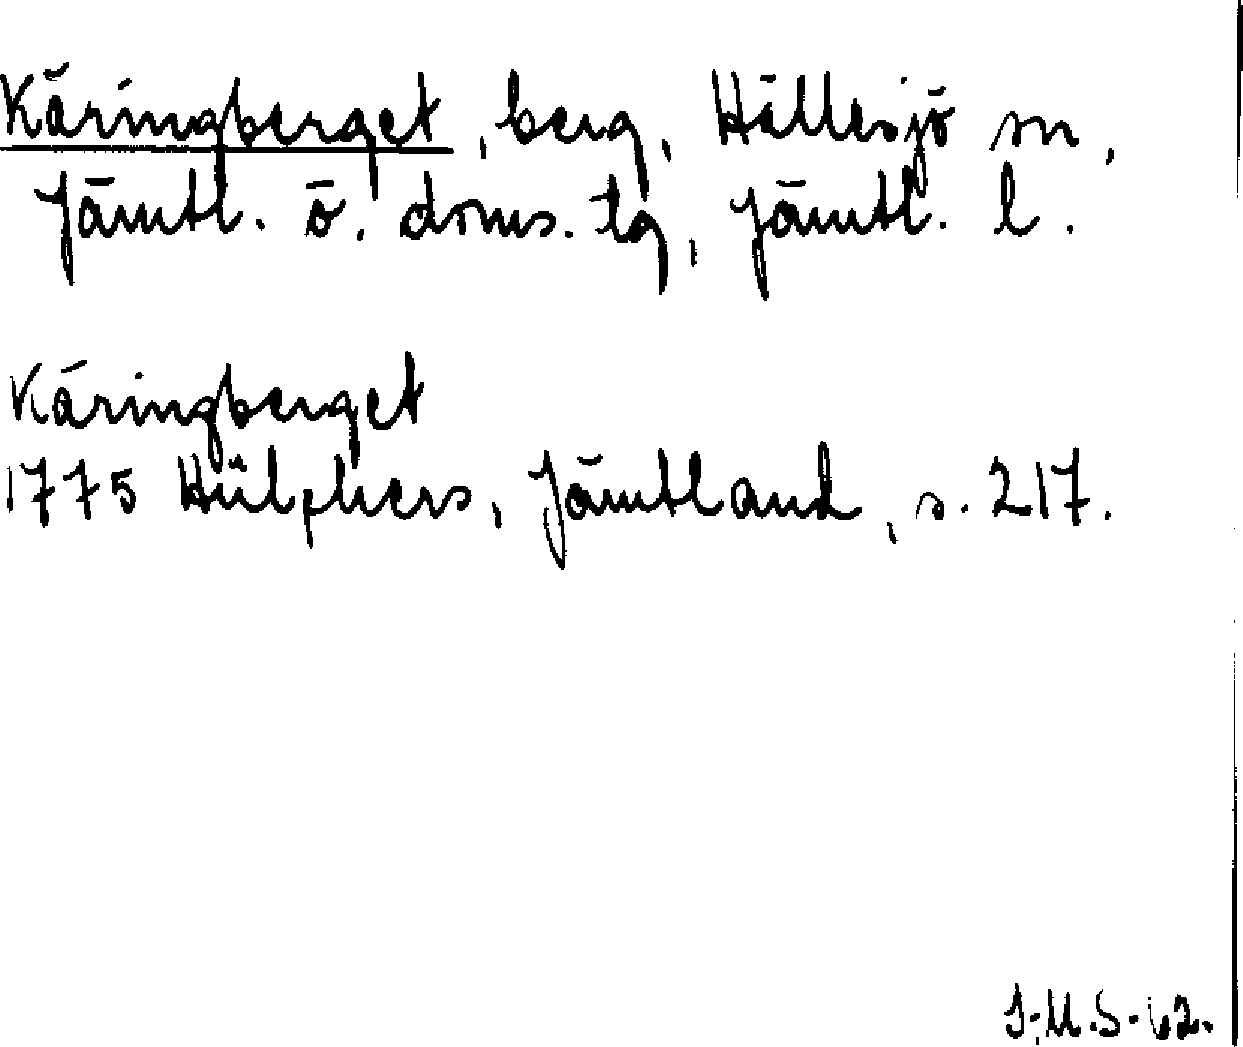 Käringberget, berg, Hällesjö sn,
Jämtl. ö. doms. tg, Jämtl. l.
Käringberget
1775 Hülphers, Jämtland, s. 217.
J.M.S. 62.